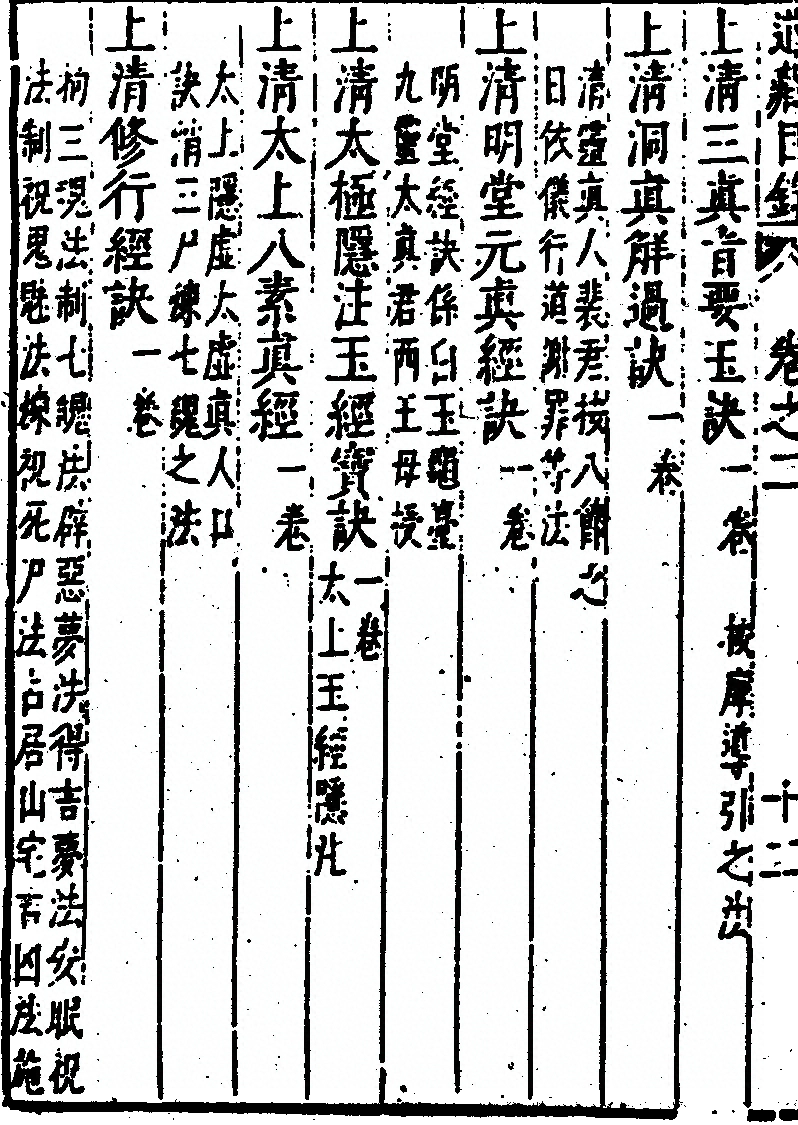 道藏目錄 卷之二 十二
上清三真旨要玉訣一卷 按摩導引之法
上清洞真解過訣一卷
清靈真人裴君按八節之
日依儀行道謝罪等法
上清明堂元真經訣一卷
明堂經訣係白玉龜臺
九靈太真君西王母授
上清太極隱注玉經寶訣一卷
太上玉經隱
上清太上八素真經一卷
太上隱虛太虛真人口
訣消三尸練七魄之法
上清修行經訣一卷
拘三魂法制七魄法辟惡夢法得吉夢法安眠祝
法制祝鬼魅法練祝死尸法占居山宅吉凶法施